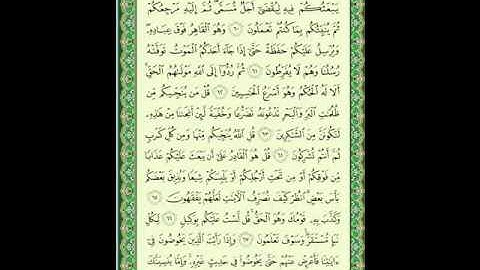 يَبْعَثُكُمْ فِيهِ لِيُقْضَىٰ أَجَلٌ مُّسَمًّى ۖ ثُمَّ إِلَيْهِ مَرْجِعُكُمْ
ثُمَّ يُنَبِّئُكُم بِمَا كُنتُمْ تَعْمَلُونَ ٦٠ وَهُوَ الْقَاهِرُ فَوْقَ عِبَادِهِ ۖ
وَيُرْسِلُ عَلَيْكُمْ حَفَظَةً حَتَّىٰ إِذَا جَاءَ أَحَدَكُمُ الْمَوْتُ تَوَفَّتْهُ
رُسُلُنَا وَهُمْ لَا يُفَرِّطُونَ ٦١ ثُمَّ رُدُّوا إِلَى اللَّهِ مَوْلَاهُمُ الْحَقِّ ۚ
أَلَا لَهُ الْحُكْمُ وَهُوَ أَسْرَعُ الْحَاسِبِينَ ٦٢ قُلْ مَن يُنَجِّيكُم مِّن
ظُلُمَاتِ الْبَرِّ وَالْبَحْرِ تَدْعُونَهُ تَضَرُّعًا وَخُفْيَةً لَّئِنْ أَنجَانَا مِنْ هَٰذِهِ
لَنَكُونَنَّ مِنَ الشَّاكِرِينَ ٦٣ قُلِ اللَّهُ يُنَجِّيكُم مِّنْهَا وَمِن كُلِّ كَرْبٍ
ثُمَّ أَنتُمْ تُشْرِكُونَ ٦٤ قُلْ هُوَ الْقَادِرُ عَلَىٰ أَن يَبْعَثَ عَلَيْكُمْ عَذَابًا
مِّن فَوْقِكُمْ أَوْ مِن تَحْتِ أَرْجُلِكُمْ أَوْ يَلْبِسَكُمْ شِيَعًا وَيُذِيقَ بَعْضَكُم
بَأْسَ بَعْضٍ ۗ انظُرْ كَيْفَ نُصَرِّفُ الْآيَاتِ لَعَلَّهُمْ يَفْقَهُونَ ٦٥
وَكَذَّبَ بِهِ قَوْمُكَ وَهُوَ الْحَقُّ ۚ قُل لَّسْتُ عَلَيْكُم بِوَكِيلٍ ٦٦ لِّكُلِّ
نَبَإٍ مُّسْتَقَرٌّ ۚ وَسَوْفَ تَعْلَمُونَ ٦٧ وَإِذَا رَأَيْتَ الَّذِينَ يَخُوضُونَ
فِي آيَاتِنَا فَأَعْرِضْ عَنْهُمْ حَتَّىٰ يَخُوضُوا فِي حَدِيثٍ غَيْرِهِ ۚ وَإِمَّا يُنسِيَنَّكَ